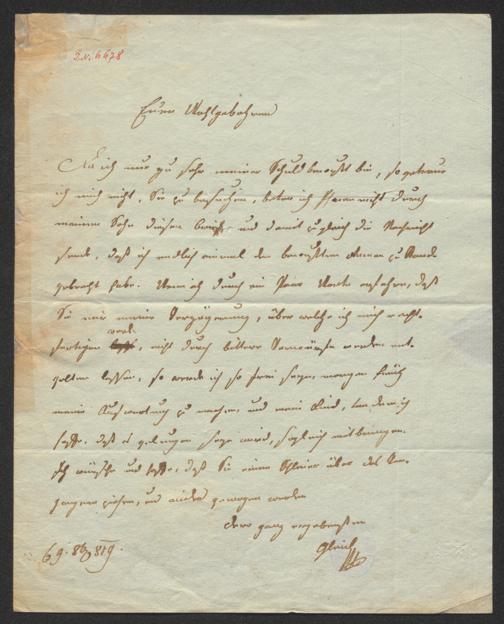 I.N. 6678
Euer Wohlgebohren
Da ich nur zu sehr meiner Schuld bewußt bin, so getraue
ich mich nicht, Sie zu besuchen, bevor ich Ihnen nicht durch
meinen Sohn diesen Brief, und damit zugleich die Nachricht
sende, daß ich endlich einmal den bewußten zu Stande
gebracht habe. Wenn ich durch ein Paar Worte erfahre, daß
Sie mir meine Verzögerung, über welche ich mich recht-
fertigen werde, nicht durch bittere Vorwürfe werden ent-
gelten lassen, so werde ich so frei seyn, morgen früh
meine Aufwartung zu machen, und mein Lied, von dem ich
hoffe, daß es gelungen seyn wird, sogleich mitbringen.
Ich wünsche und hoffe, daß Sie einen Schleier über das Ver-
gangene ziehen, und gewogen werden
dero ganz ergebensten
Gleich
819.